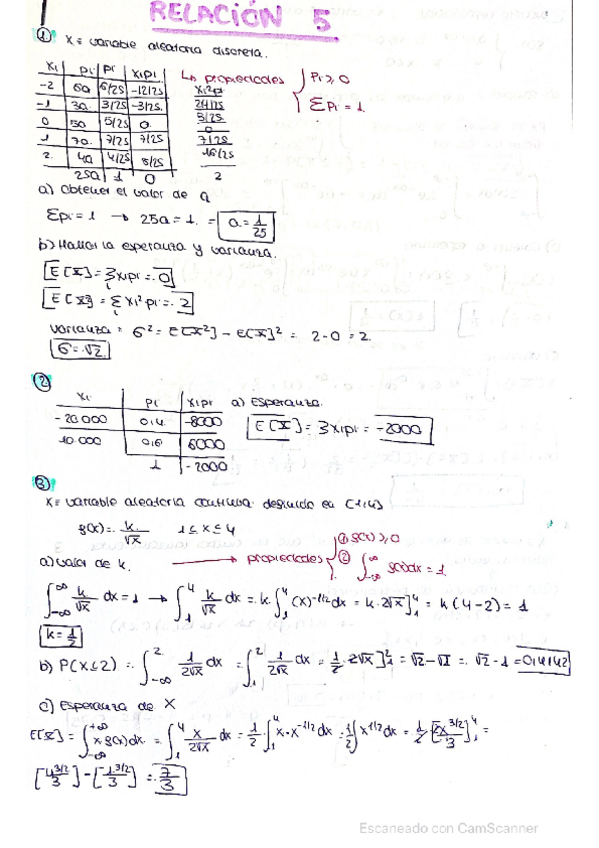 RELACIÓN 5
① X = variable aleatoria discreta.
xi pi pi xipi xi²pi
-2 6a 6/25 -12/25 24/25
-1 3a 3/25 -3/25 3/25
0 5a 5/25 0 0
1 7a 7/25 7/25 7/25
2 4a 4/25 8/25 16/25
25a 1 0 2
↳ propiedades
Pi ≥ 0
Σpi = 1
a) Obtener el valor de a
Σpi = 1 → 25a = 1 = a = 1/25
b) Hallar la esperanza y varianza.
E[X] = Σ xipi = 0
E[X²] = Σ xi² pi = 2
varianza = σ² = E[X²] - E[X]² = 2 - 0 = 2.
σ = √2
②
xi pi xipi
-20 000 0,4 -8000
10 000 0,6 6000
1 -2000
a) esperanza.
E[X] = Σxipi = -2000
③
X = variable aleatoria continua definida en (1,4)
f(x) = k/√x 1 ≤ x ≤ 4
a) valor de k. → propiedades
① f(x) ≥ 0
② ∫_{-∞}^{∞} f(x)dx = 1
∫_{-∞}^{∞} k/√x dx = 1 → ∫₁⁴ k/√x dx = k ∫₁⁴ (x)^{-1/2} dx = k · 2√x]₁⁴ = k(4-2) = 1
k = 1/2
b) P(X ≤ 2) = ∫_{-∞}^{2} 1/2√x dx = ∫₁² 1/2√x dx = 1/2 · 2√x]₁² = √2 - √1 = √2 - 1 = 0,4142
c) Esperanza de X
E[X] = ∫_{-∞}^{+∞} x·f(x)dx = ∫₁⁴ x/2√x dx = 1/2 ∫₁⁴ x·x^{-1/2} dx = 1/2 ∫ x^{1/2} dx = 1/2 [2x^{3/2}/3]₁⁴ =
[4^{3/2}/3] - [1^{3/2}/3] = 7/3
Escaneado con CamScanner